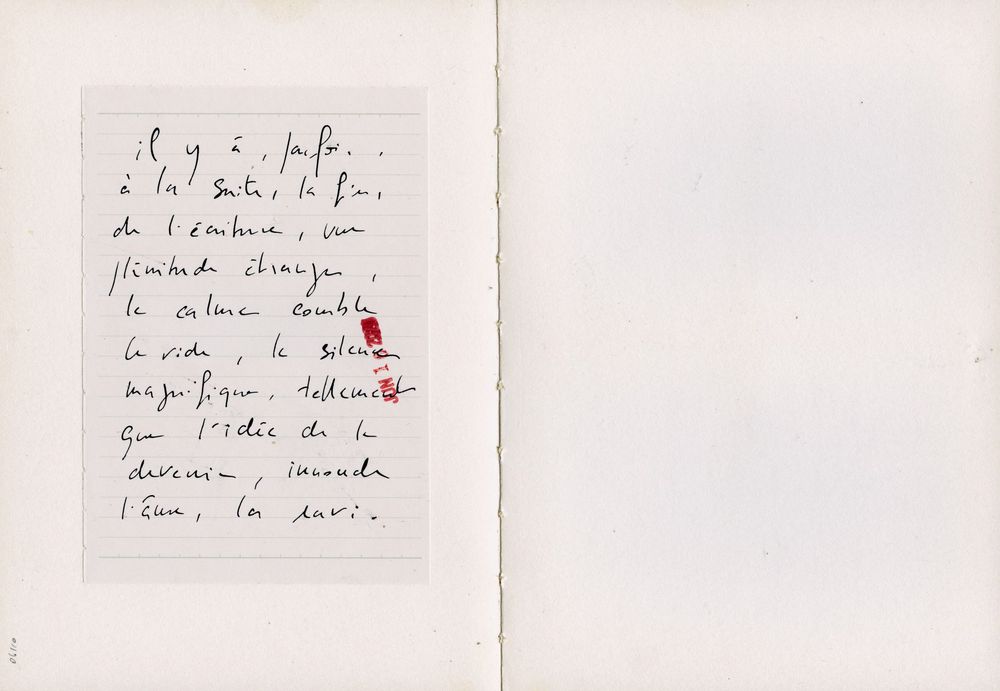 il y a, parfois,
à la suite, la fin,
de l'écriture, une
plénitude étrange,
le calme comble
le vide, le silence
magnifique, tellement
que l'idée de le
devenir, innonde
l'âme, la ravi.